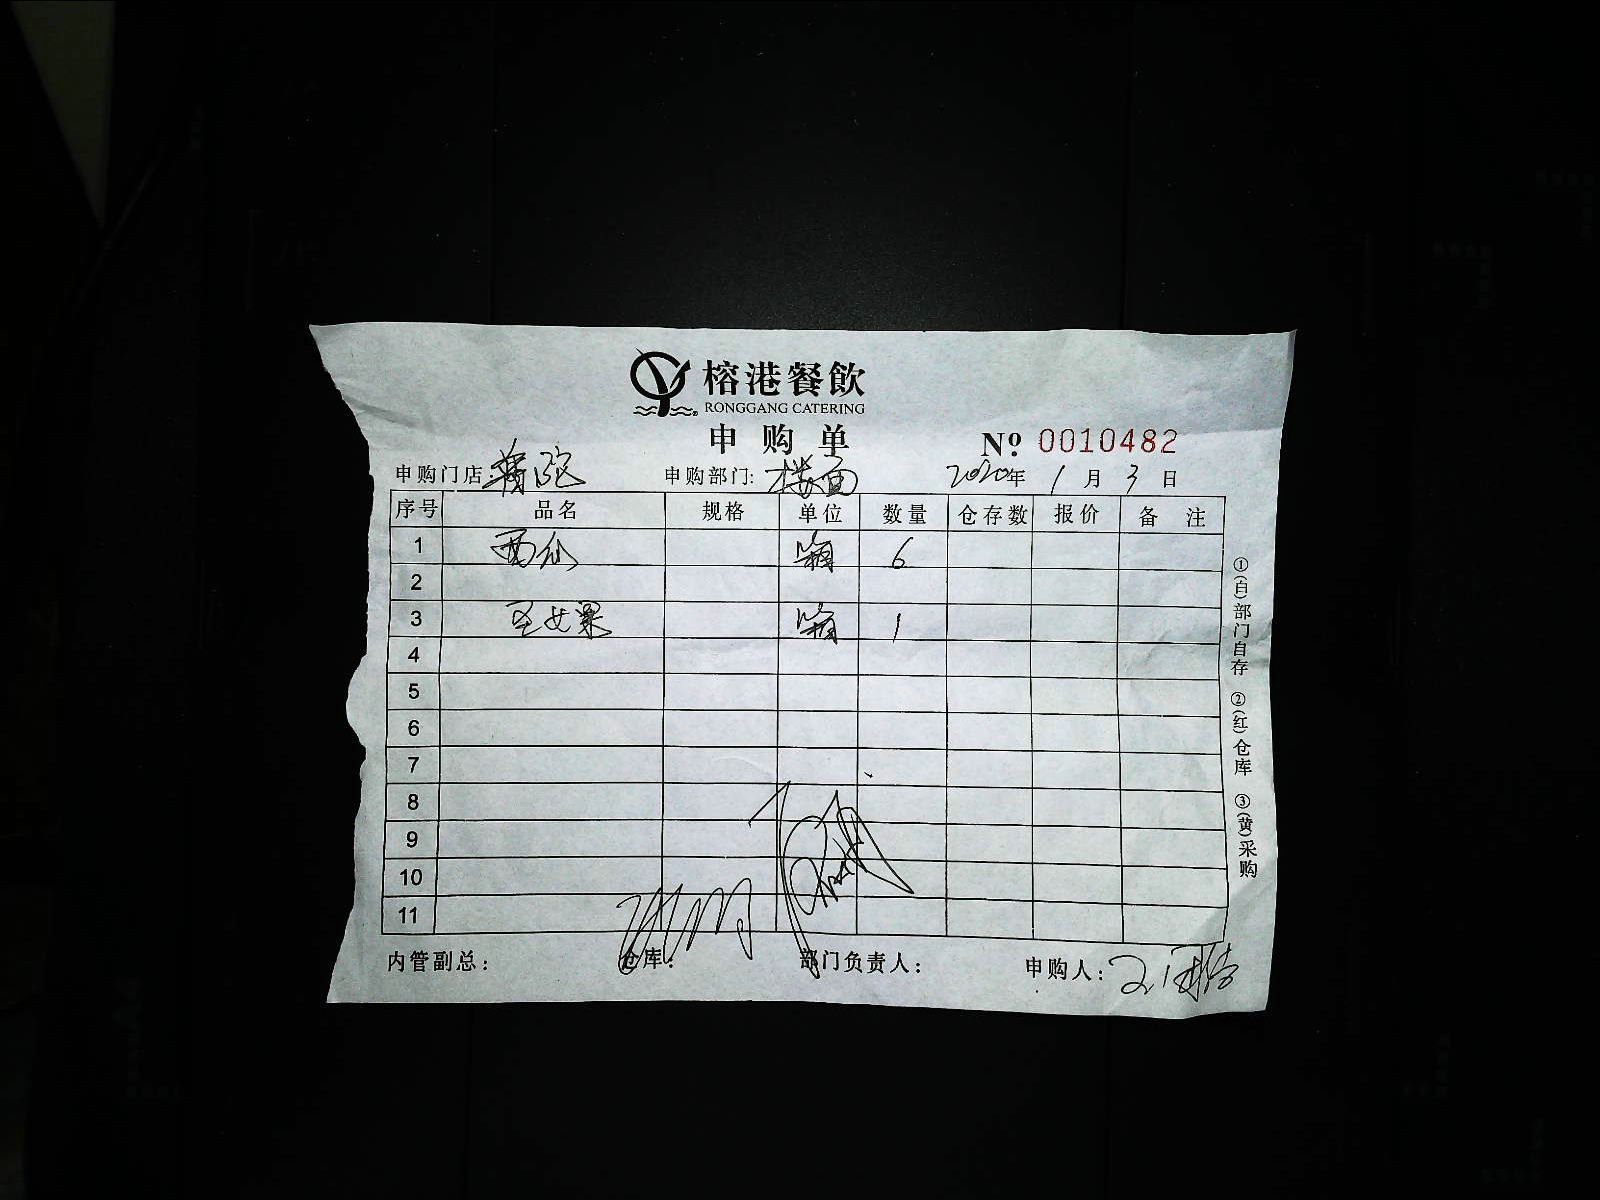 榕港餐飲
RONGGANG CATERING
申购单
№ 0010482
申购门店: 普陀 申购部门: 楼面 2020年 1月 3日
序号 品名 规格 单位 数量 仓存数 报价 备注
1 西仙 箱 6
2
3 圣女果 箱 1
4
5
6
7
8
9
10
11
内管副总: 仓库: 部门负责人: 申购人:
①(白)部门自存 ②(红)仓库 ③(黄)采购